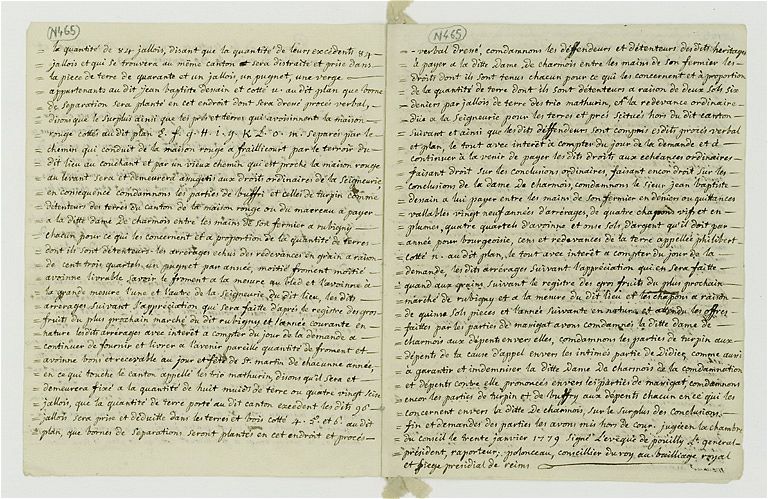 N465
= la quantité de 84 jallois, disant que la quantité de leurs excédents 84 -
= jallois et qui se trouvera au même canton sera distraite et prise dans
= la piece de terre de quarante et un jallois, un pugnet, une verge
= appartenants au dit jean baptiste desain et cotté u. au dit plan que borne
= de separation sera planté en cet endroit dont sera dressé procés verbal,
= disons que le surplus ainsi que les prés et terres qui avoisinnent la maison -
= rouge cottés au dit plan E. f. g. H. i. K. L. o. m. separés par le
= chemin qui conduit de la maison rouge a fraillicourt par le terroir du
= dit lieu au couchant et par un vieux chemin qui est proche la maison rouge
= au levant sera et demeurera assujetis aux droits ordinaires de la seigneurie,
= en conséquence comdamnons les parties de buffry et celles de turpin comme
= détenteurs des terres du canton de la maison rouge ou du marreau a payer
= a la ditte Dame De charmois entre les mains de son fermier a rubigny
= chacun pour ce qui les concernent et a proportion de la quantité de terres -
= dont ils sont détenteurs les arrérages echus des redevances en grain a raison
= de cent trois quartels, un pugnet par année, moitié froment moitié
= avoinne livrable savoir le froment a la mesure au bled et l'avoinne a
= la grande mesure l'une et l'autre de la seigneurie du dit lieu, les dits
= arrérages suivant l'appréciation qui sera faitte d'après le registre des gros
= fruits du plus prochain marché du dit rubigny et l'année courante en
= nature les dits arrérages avec intérêt a compter du jour de la demande a
= continuer de fournir et livrer a l'avenir pareille quantité de froment et -
= avoinne bons et recevable au jour et fête de St. martin de chacunne année,
= en ce qui touche le canton appellé les trio mathurin, disons qu'il sera et
= demeurera fixé a la quantité de huit muids de terre ou quatre vingt seize
= jallois, que la quantité de terre porté au dit canton excédent les dits 96
= jallois sera prise et déduitte dans les terres et bois cotté 4. 5. et 6. au dit
= plan, que bornes de separations seront plantés en cet endroit et procés -
N465
= - verbal dressé, comdamnons les déffendeurs et détenteurs des dits heritages
= le payer a la ditte Dame De charmois entre les mains de son fermier les -
= droits dont ils sont tenus chacun pour ce qui les concernent et a proportion
= de la quantité de terre dont ils sont détenteurs a raison de deux sols six
= deniers par jallois de terre des trio mathurin, et la redevance ordinaire -
= düe a la seigneurie pour les terres et prés scitués hors du dit canton -
= suivant et ainsi que les dits déffendeurs sont compris es dits procés verbal
= et plan, le tout avec intérêt a compter du jour de la demande et a
= continuer a la venir de payer les dits droits aux echeances ordinaires -
= faisant droit sur les conclusions ordinaires, faisant encor droit sur les
= conclusions de la Dame De charmois, comdamnons le sieur jean baptiste -
= desain a lui payer entre les mains de son fermier en deniers ou quittances
= vallables vingt neuf années d'arrérages, de quatre chapons vifs et en -
= plumes, quatre quartels d'avoinne et onse sols d'argent qu'il doit par -
= année pour bourgeoisie, cens et redevances de la terre appellé philibert
= cotté n. au dit plan, le tout avec intérêt a compter du jour de la
= demande, les dits arrérages suivant l'appréciation qui en sera faitte -
= quand aux grains, suivant le registre des gros fruits du plus prochain
= marché de rubigny et a la mesure du dit lieu et les chapons a raison
= de quinse sols pieces et l'année suivante en nature, et attendu les offres
= faittes par les parties de marigat avons comdamnés la ditte dame de
= charmois aux dépents envers elles, comdamnons les parties de turpin aux
= dépents de la cause d'appel envers les intimés partie de Didier comme aussi
= a garantir et indemniser la ditte Dame De charmois de la comdamnation
= et dépents contre elle prononcés envers les parties de marigat, comdamnons
= encor les parties de turpin et de buffry aux dépents chacun en ce qui les
= concernent envers la ditte De charmois, sur le surplus des conclusions
= fin et demandes des parties les avons mis hors de cour. jugée en la chambre
= du conseil le trente janvier 1779 signé Levêque de pouilly Lt. general -
= président, raporteur; polonceau, conseillier du roy au bailliage royal
et siege presidial de reims